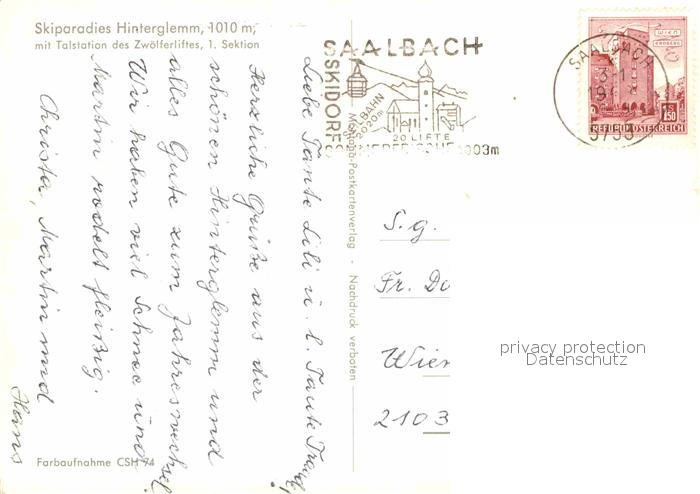 Skiparadies Hinterglemm, 1010 m,
mit Talstation des Zwölferliftes, 1. Sektion
Liebe Tante Lili u. l. Tante Traudl!
Herzliche Grüße aus der
schönen Hinterglemm und
alles Gute zum Jahreswechsel.
Wir haben viel Schnee und
Martin rodelt fleißig.
Christa, Martin und
Hans
Farbaufnahme CSH 74
Postkartenverlag · Nachdruck verboten
SAALBACH
SKIDORF
SEILBAHN
20 LIFTE
1003m
SAALBACH
WIEN
ERDBERG
1.50
REPUBLIK ÖSTERREICH
S. g.
Fr. Do
Wien
2103
privacy protection
Datenschutz